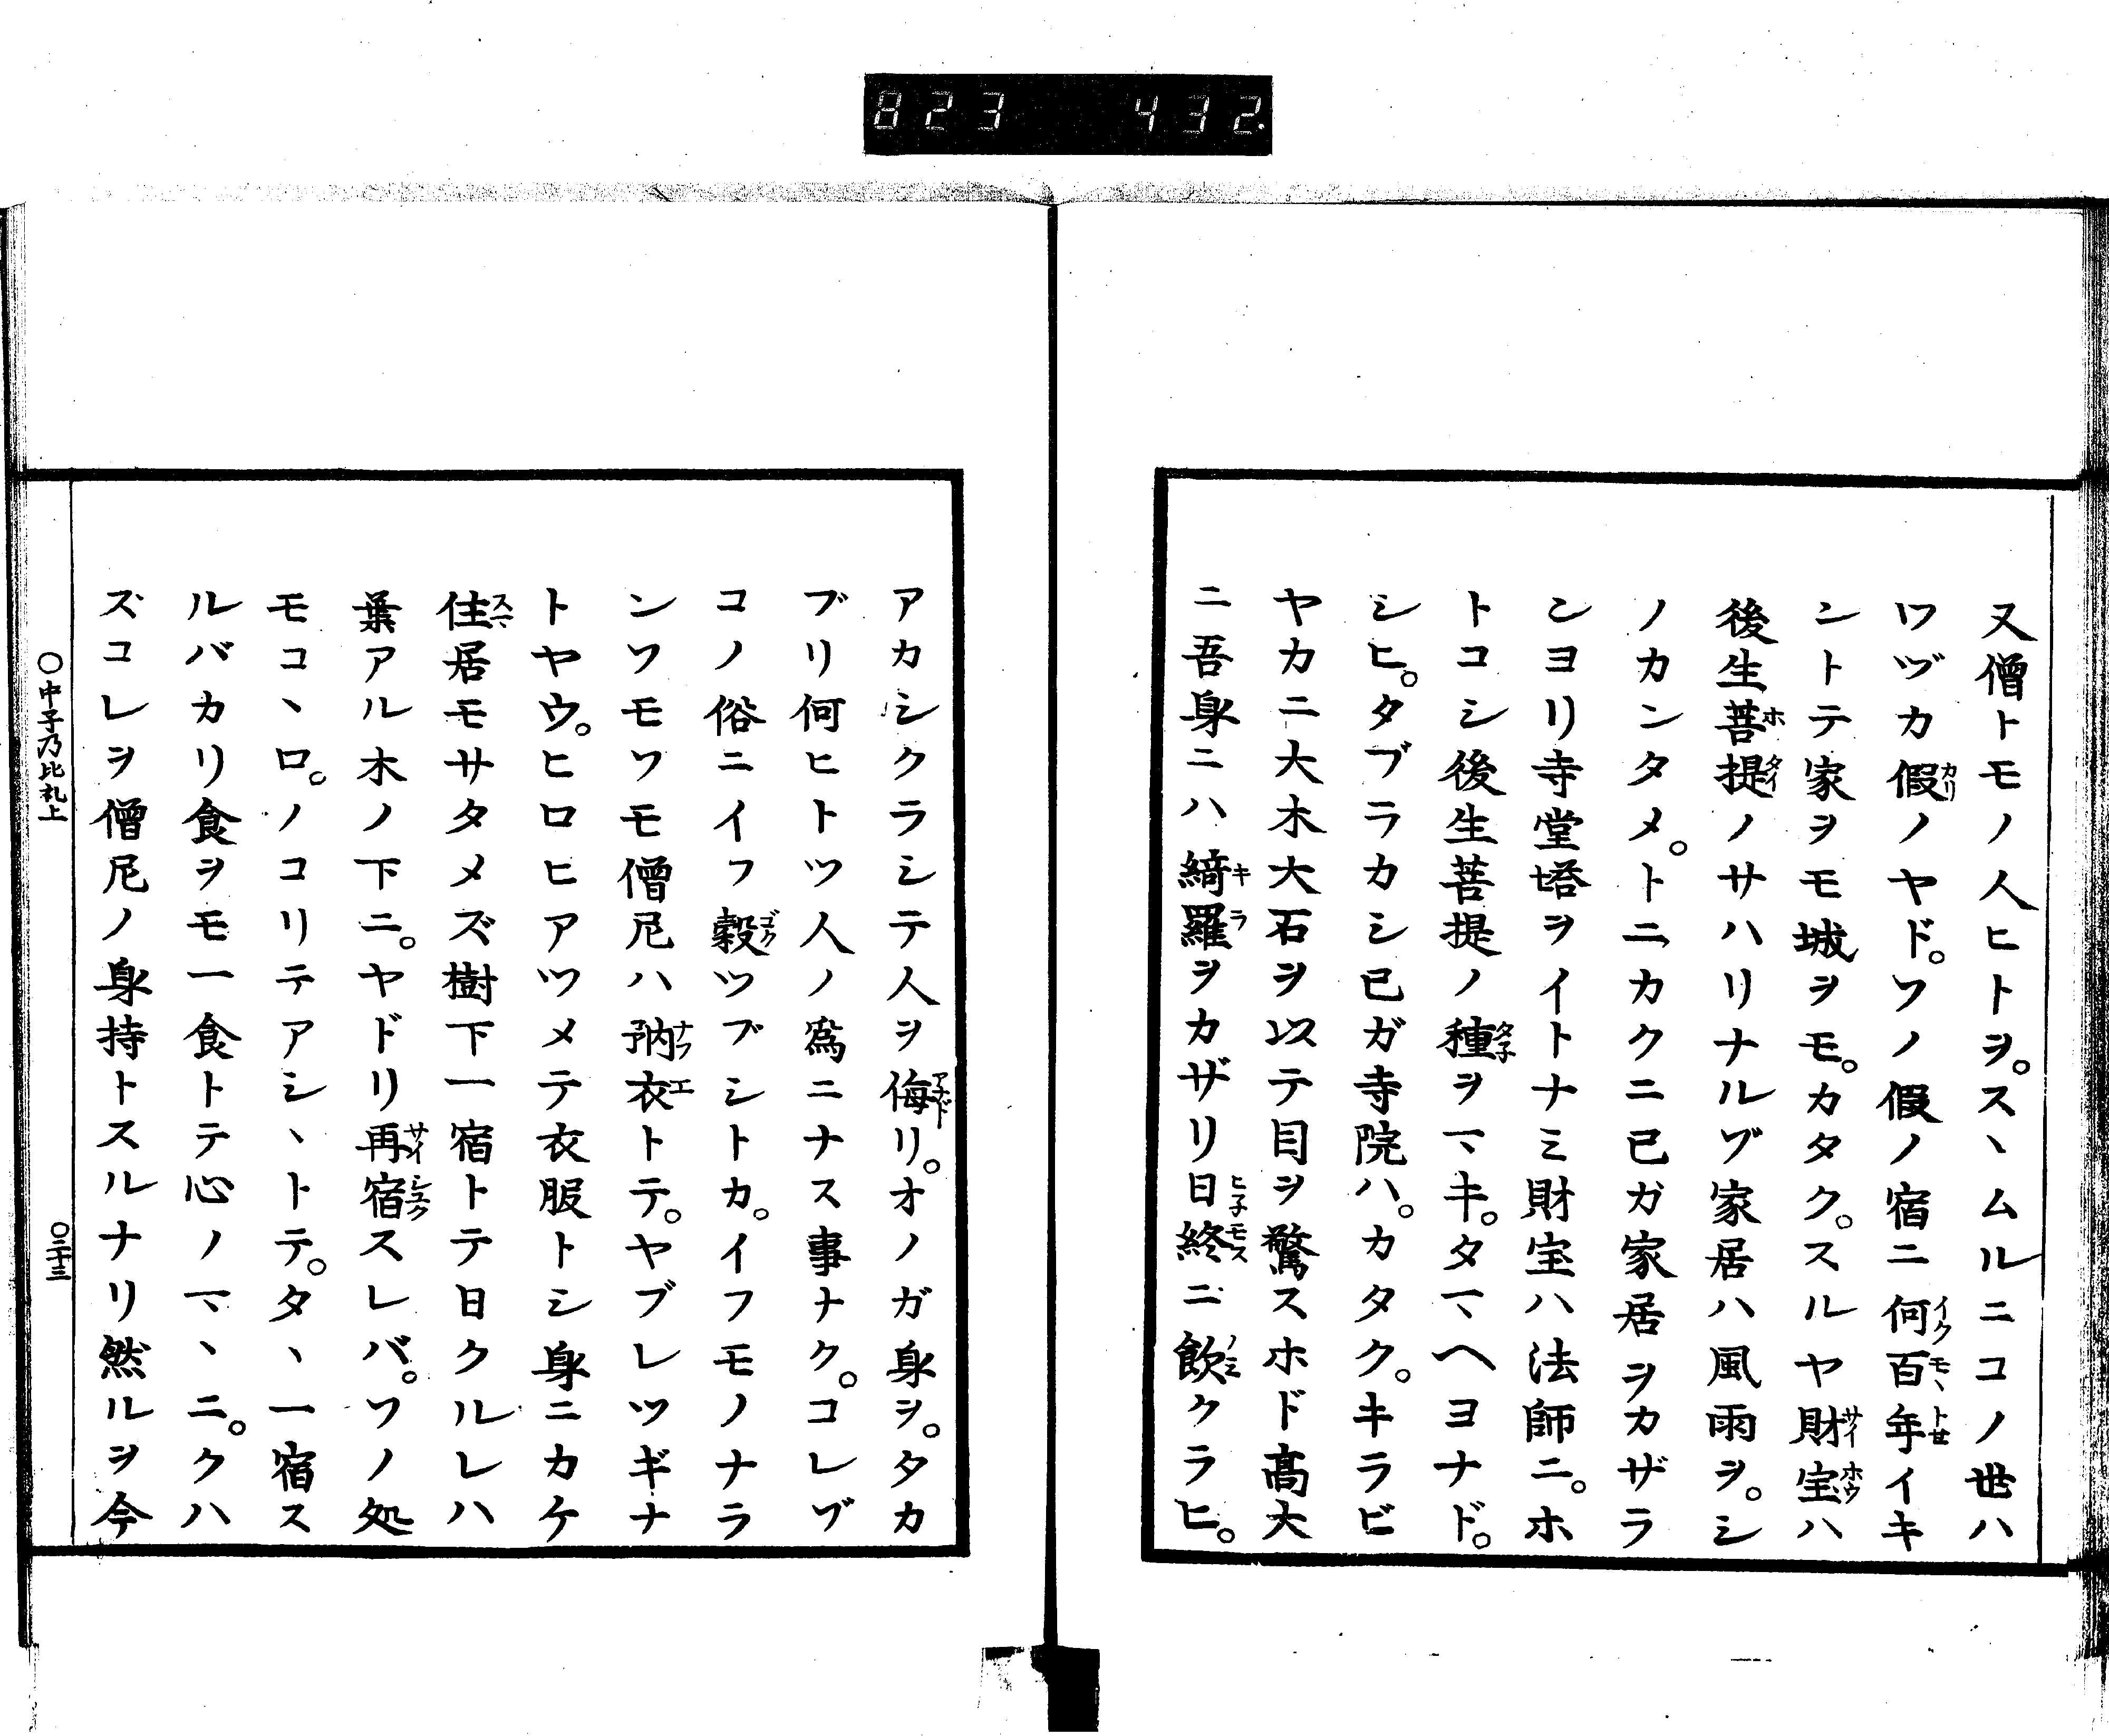 823 432.
又僧トモノ人ヒトヲ。スヽムルニコノ世ハ
ワヅカ假ノヤド。ソノ假ノ宿ニ何百年イキ
ントテ家ヲモ城ヲモ。カタク。スルヤ財宝ハ
後生菩提ノサハリナルゾ家居ハ風雨ヲ。シ
ノカンタメ。トニカクニ已ガ家居ヲカザラ
ンヨリ寺堂塔ヲイトナミ財宝ハ法師ニ。ホ
トコシ後生菩提ノ種ヲマキ。タマヘヨナド。
シヒ。タブラカシ已ガ寺院ハ。カタク。キラビ
ヤカニ大木大石ヲ以テ目ヲ驚スホド髙大
ニ吾身ニハ綺羅ヲカザリ日終ニ飲クラヒ。
アカシクラシテ人ヲ侮リ。オノガ身ヲ。タカ
ブリ何ヒトツ人ノ為ニナス事ナク。コレゾ
コノ俗ニイフ穀ツブシトカ。イフモノナラ
ンソモソモ僧尼ハ衲衣トテ。ヤブレツギナ
トヤウ。ヒロヒアツメテ衣服トシ身ニカケ
住居モサタメズ樹下一宿トテ日クルレハ
葉アル木ノ下ニ。ヤドリ再宿スレバ。ソノ処
モコヽロ。ノコリテアシヽトテ。タヽ一宿ス
ルバカリ食ヲモ一食トテ心ノマヽニ。クハ
ズコレヲ僧尼ノ身持トスルナリ然ルヲ今
〇中子乃比礼上 〇二十三